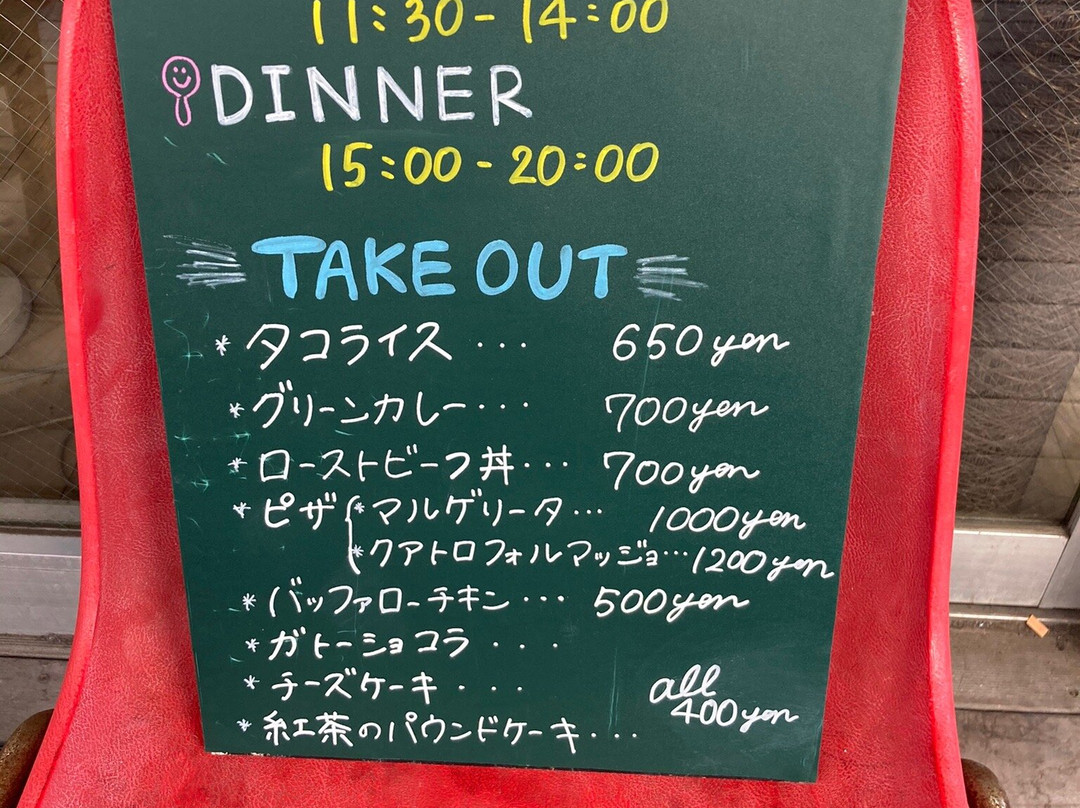 11:30-14:00
DINNER
15:00-20:00
TAKE OUT
* タコライス ... 650yen
* グリーンカレー... 700yen
* ローストビーフ丼... 700yen
* ピザ { * マルゲリータ... 1000yen
* クアトロフォルマッジョ...1200yen
* バッファローチキン... 500yen
* ガトーショコラ ...
* チーズケーキ ... all
* 紅茶のパウンドケーキ... 400yen